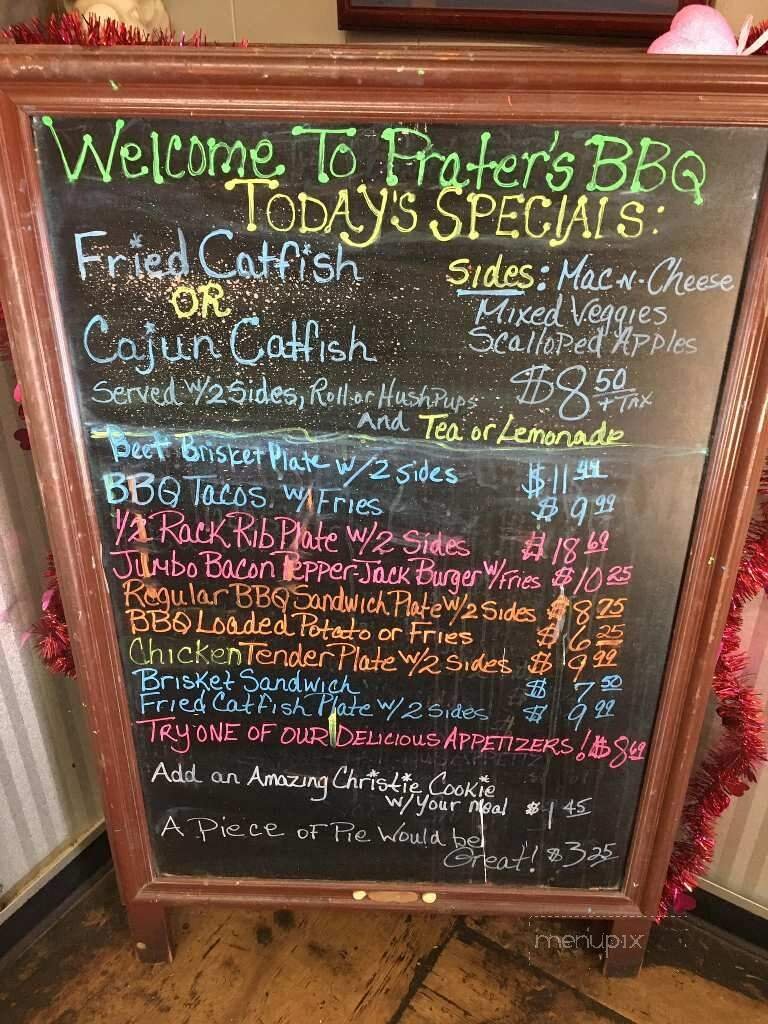 Welcome To Prater's BBQ
TODAY'S SPECIALS:
Fried Catfish
OR
Cajun Catfish
Served w/2 Sides, Roll or Hushpups
And Tea or Lemonade
Sides: Mac-N-Cheese
Mixed Veggies
Scalloped Apples
$8.50 + Tax
Beef Brisket Plate w/2 Sides $11.99
BBQ Tacos w/Fries $9.99
1/2 Rack Rib Plate w/2 Sides $18.69
Jumbo Bacon Pepper-Jack Burger w/Fries $10.25
Regular BBQ Sandwich Plate w/2 Sides $8.75
BBQ Loaded Potato or Fries $6.25
Chicken Tender Plate w/2 Sides $9.99
Brisket Sandwich $7.50
Fried Catfish Plate w/2 Sides $9.99
TRY ONE OF OUR DELICIOUS APPETIZERS! $8.69
Add an Amazing Christie Cookie
w/your meal $1.45
A Piece of Pie Would be
Great! $3.25
menupix